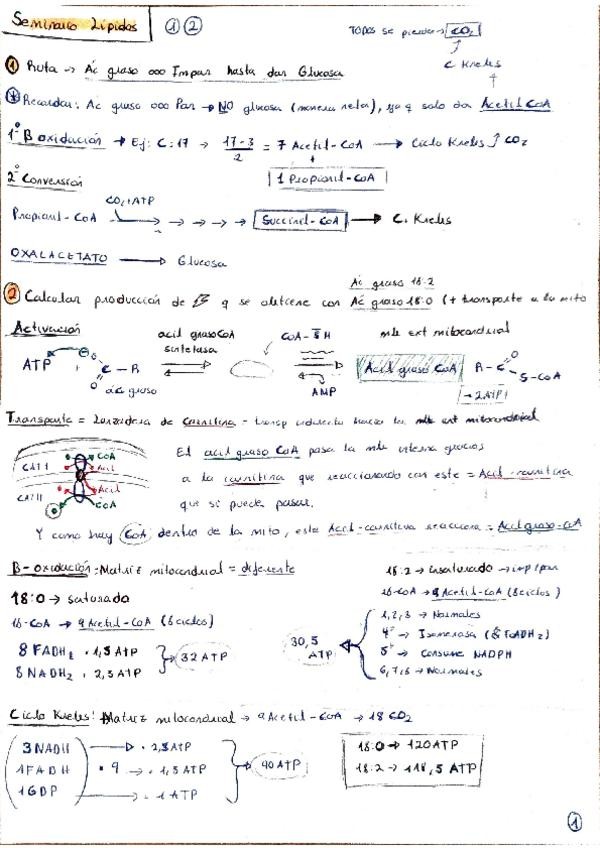 Seminario Lípidos ① ②
TODOS se pierden → CO₂
C Krebs
① Ruta → Ác graso ooo Impar hasta dar Glucosa
Recordar: Ac graso ooo Par → NO glucosa (manera neta), ya q solo da Acetil CoA
1º B oxidación → Ej: C:17 → 17-3/2 = 7 Acetil-CoA → Ciclo Krebs ↑ CO₂
+
1 Propionil-CoA
2º Conversión
CO₂+ATP
Propionil-CoA → → → → Succinil-CoA → C. Krebs
OXALACETATO → Glucosa
Ác graso 18:2
② Calcular producción de E q se obtiene con Ác graso 18:0 (+ transporte a la mito
Activación
acil grasoCoA sintetasa
CoA-SH
mb ext mitocondrial
ATP + O C - R
ác graso
AMP
Acil graso CoA R-C O S-CoA
- 2ATP
Transporte = Lanzadera de carnitina - transp mb ext mitocondrial
CAT I CoA Acil
CAT II Acil CoA
El acil graso CoA pasa la mb interna gracias
a la carnitina que reaccionando con este = Acil-carnitina
que si puede pasar.
Y como hay CoA dentro de la mito, este Acil-carnitina reacciona = Acilgraso-CoA
B-oxidación: Matriz mitocondrial = diferente
18:0 → saturado
18-CoA → 9 Acetil-CoA (8 ciclos)
8 FADH₂ · 1,5 ATP
8 NADH₂ · 2,5 ATP
32 ATP
18:2 → insaturado → imp/par
18-CoA → 9 Acetil-CoA (8 ciclos)
1, 2, 3 → Normales
4º → Isomerasa (FADH₂)
5º → Consume NADPH
6, 7, 8 → Normales
30,5 ATP
Ciclo Krebs: Matriz mitocondrial → 9 Acetil-CoA → 18 CO₂
3NADH → · 2,5ATP
1FADH · 9 → · 1,5 ATP
1GDP → · 1 ATP
90 ATP
18:0 → 120ATP
18:2 → 118,5 ATP
1